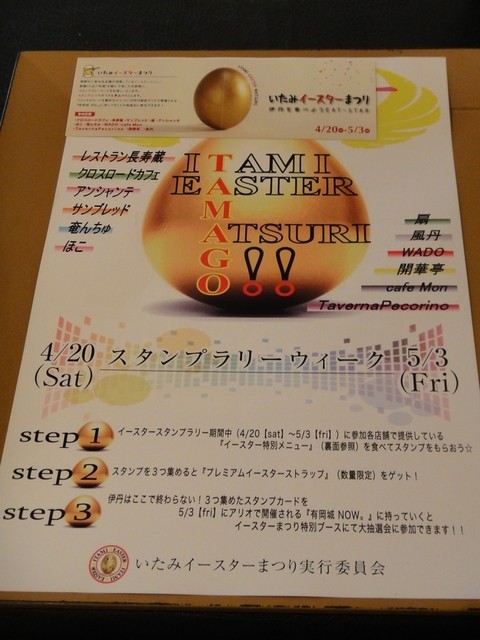 いたみイースターまつり
いたみイースターまつり
4/20 5/3
レストラン長寿蔵
クロスロードカフェ
アンシャンテ
サンブレッド
奄んちゅ
ほこ
ITAMI
EASTER
TAMAGO
MATSURI
!!
扇
風丹
WADO
開華亭
cafe Mon
TavernaPecorino
4/20 スタンプラリーウィーク 5/3
(Sat) (Fri)
step 1 イースタースタンプラリー期間中(4/20【sat】～5/3【fri】)に参加各店舗で提供している
『イースター特別メニュー』(裏面参照)を食べてスタンプをもらおう☆
step 2 スタンプを3つ集めると『プレミアムイースターストラップ』(数量限定)をゲット!
step 3 伊丹はここで終わらない!3つ集めたスタンプカードを
5/3【fri】にアリオで開催される『有岡城 NOW。』に持っていくと
イースターまつり特別ブースにて大抽選会に参加できます!!
いたみイースターまつり実行委員会